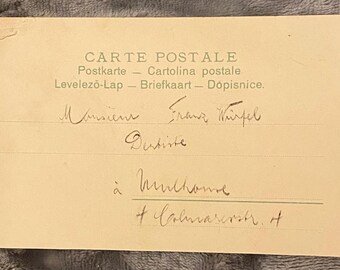 CARTE POSTALE
Postkarte — Cartolina postale
Levelező-Lap — Briefkaart — Dópisnice.
Monsieur Franz Würfel
Dentiste
à Mulhouse
4 Colmarerstr. 4